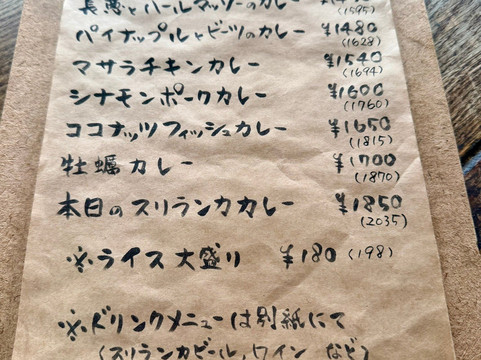 長葱とパールマッツーのカレー
(1595)
パイナップルとビーツのカレー ¥1480
(1628)
マサラチキンカレー ¥1540
(1694)
シナモンポークカレー ¥1600
(1760)
ココナッツフィッシュカレー ¥1650
(1815)
牡蠣カレー ¥1700
(1870)
本日のスリランカカレー ¥1850
(2035)
※ライス大盛り ¥180 (198)
※ドリンクメニューは別紙にて
(スリランカビール、ワイン など)